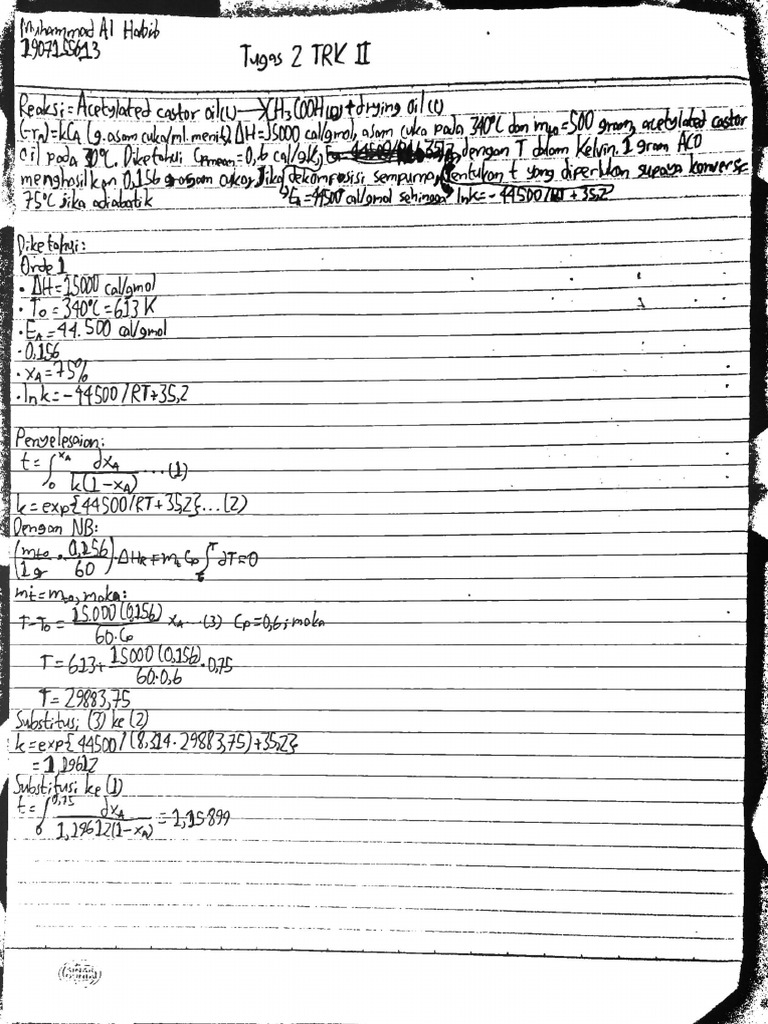 Muhammad Al Habib
1907155613
Tugas 2 TRK II
Reaksi = Acetylated castor oil(l) → CH3COOH(g) + drying oil(l)
(-rA)=kCA (g.asam cuka/ml.menit), ΔH=15000 cal/gmol, asam cuka pada 340°C dan mto=500 gram, acetylated castor
oil pada 30°C. Diketahui Cpmean=0,6 cal/gK, dengan T dalam Kelvin. 1 gram ACO
menghasilkan 0,156 gram asam cuka, Jika dekomposisi sempurna, tentukan t yang diperlukan supaya konversi
75°C jika adiabatik EA=44500 cal/gmol sehingga lnk=-44500/RT+35,2
Diketahui:
Orde 1
• ΔH=15000 cal/gmol
• To=340°C=613 K
• EA=44.500 cal/gmol
• 0,156
• xA=75%
• lnk=-44500/RT+35,2
Penyelesaian:
t=∫0^xA dxA/k(1-xA) ...(1)
k=exp{44500/RT+35,2}...(2)
Dengan NB:
(mto/1g · 0,156/60)·ΔHR+mt Cp ∫To^T dT=0
mt=mto, maka:
T-To=15.000(0,156)/60.Cp xA ...(3) Cp=0,6; maka
T=613+15000(0,156)/60.0,6 .0,75
T=29883,75
Substitusi (3) ke (2)
k=exp{44500/(8,314.29883,75)+35,2}
=1,19612
Substitusi ke (1)
t=∫0^0,75 dxA/1,19612(1-xA)=1,15899